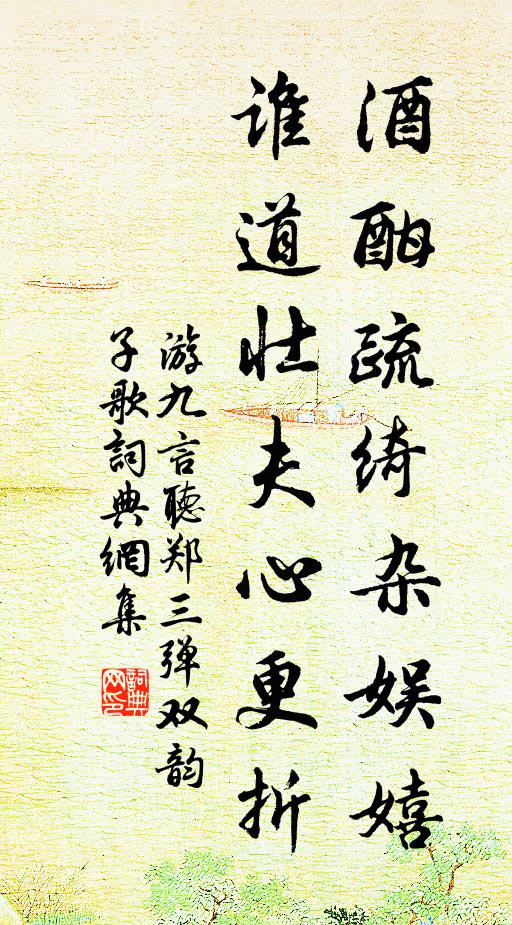 酒酣疏绮杂娱嬉
谁道壮夫心更折
游九言聽郑三弹双韵
子歌詞典網集
詞典网印